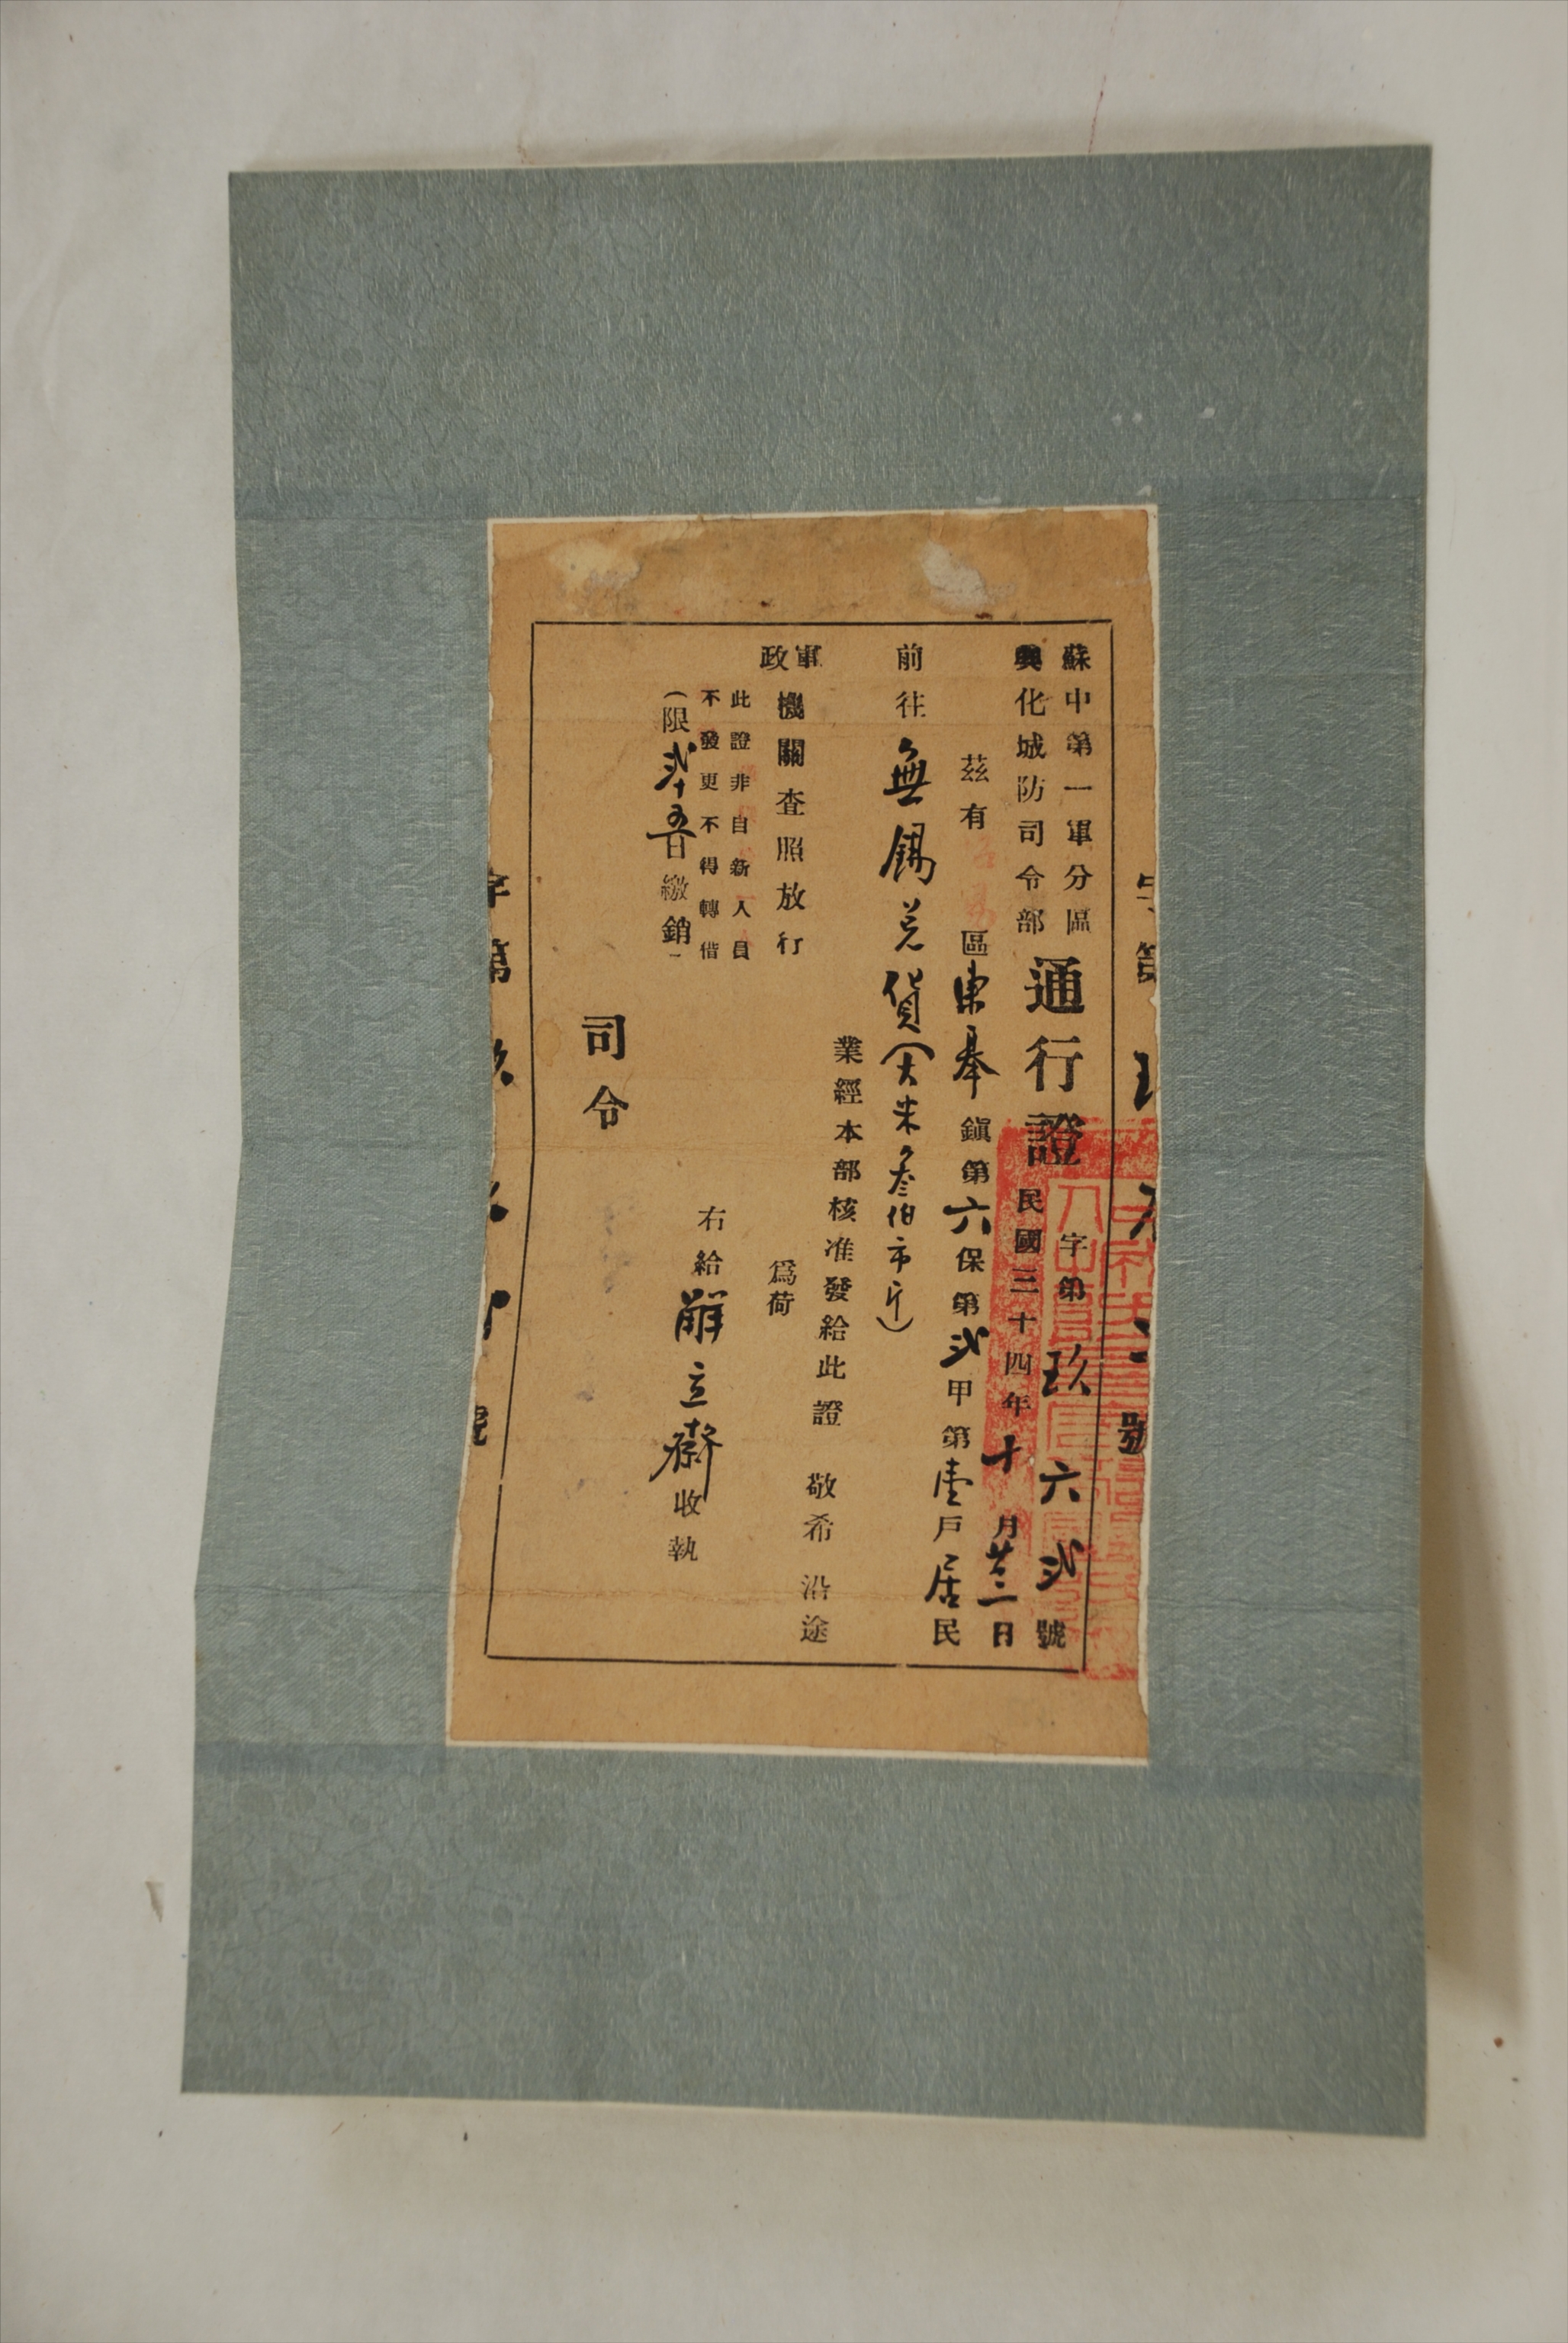 蘇中第一軍分區
興化城防司令部
通行證
字第玖六弍號
民國三十四年十月廿二日
茲有 區東 鎭第六保第弍甲第壹戶居民
前往無錫兑貨(大米叁伯市斤)
業經本部核准發給此證 敬希沿途
軍政機關查照放行 爲荷
此證非自新人員
不發更不得轉借
(限弍十五日繳銷)
右給解立齋收執
司令